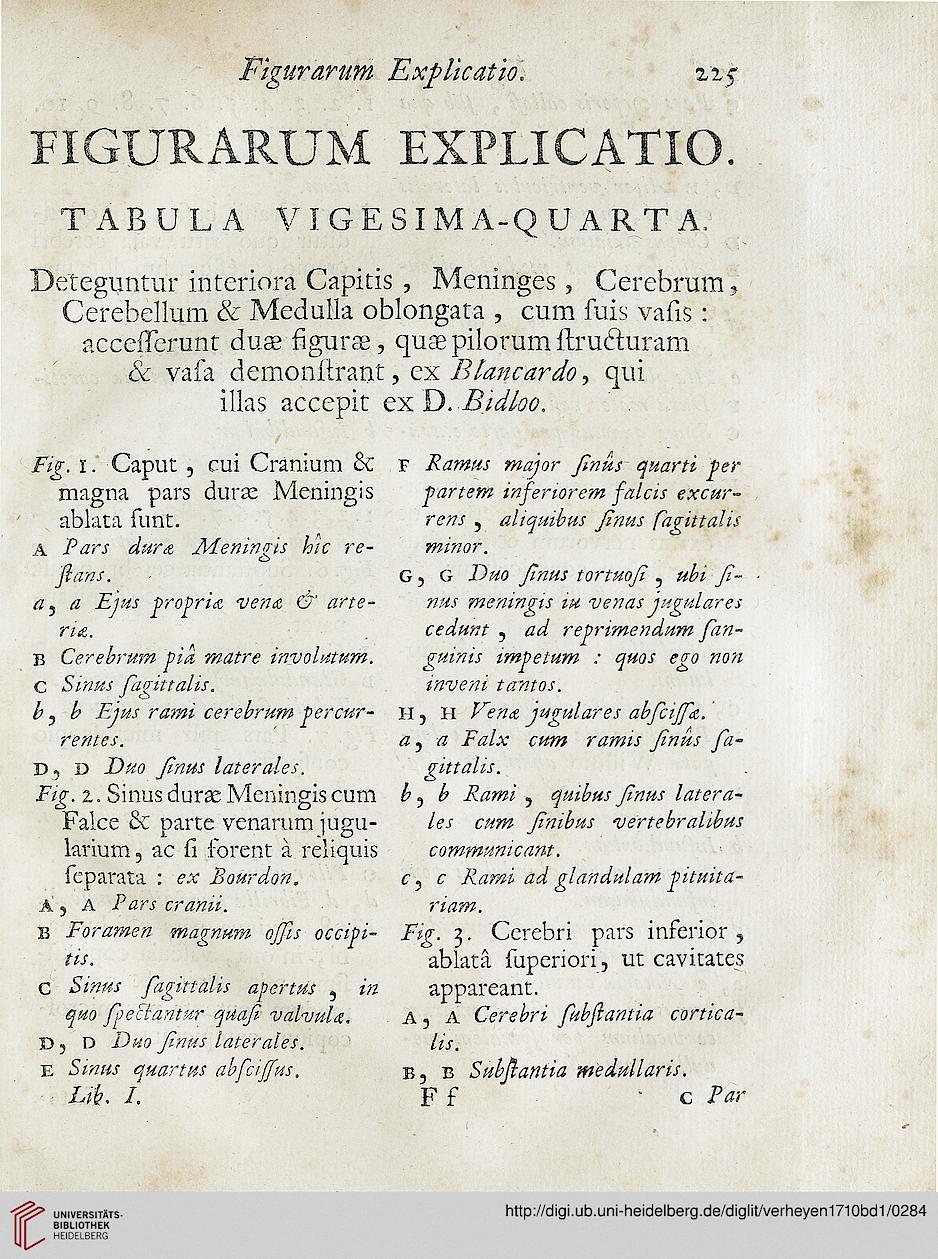 Figurarum Explicatio. 225
FIGURARUM EXPLICATIO.
TABULA VIGESIMA-QUARTA.
Deteguntur interiora Capitis, Meninges, Cerebrum,
Cerebellum & Medulla oblongata, cum ſuis vaſis:
acceſſerunt duæ figuræ, quæ pilorum ſtructuram
& vaſa demonſtrant, ex Blancardo, qui
illas accepit ex D. Bidloo.
Fig. 1. Caput, cui Cranium &
magna pars duræ Meningis
ablata ſunt.
A Pars duræ Meningis hîc re-
ſtans.
a, a Ejus propriæ venæ & arte-
riæ.
B Cerebrum piâ matre involutum.
C Sinus ſagittalis.
b, b Ejus rami cerebrum percur-
rentes.
D, D Duo ſinus laterales.
Fig. 2. Sinus duræ Meningis cum
Falce & parte venarum jugu-
larium, ac ſi forent à reliquis
ſeparata : ex Bourdon.
A, A Pars cranii.
B Foramen magnum oſſis occipi-
tis.
C Sinus ſagittalis apertus, in
quo ſpectantur quaſi valvulæ.
D, D Duo ſinus laterales.
E Sinus quartus abſciſſus.
Lib. I.
F Ramus major ſinûs quarti per
partem inferiorem falcis excur-
rens, aliquibus ſinus ſagittalis
minor.
G, G Duo ſinus tortuoſi, ubi ſi-
nus meningis in venas jugulares
cedunt, ad reprimendum ſan-
guinis impetum : quos ego non
inveni tantos.
H, H Venæ jugulares abſciſſæ.
a, a Falx cum ramis ſinûs ſa-
gittalis.
b, b Rami, quibus ſinus latera-
les cum ſinibus vertebralibus
communicant.
c, c Rami ad glandulam pituita-
riam.
Fig. 3. Cerebri pars inferior,
ablatâ ſuperiori, ut cavitates
appareant.
A, A Cerebri ſubſtantia cortica-
lis.
B, B Subſtantia medullaris.
F f C Par
UNIVERSITÄTS-
BIBLIOTHEK
HEIDELBERG
http://digi.ub.uni-heidelberg.de/diglit/verheyen1710bd1/0284